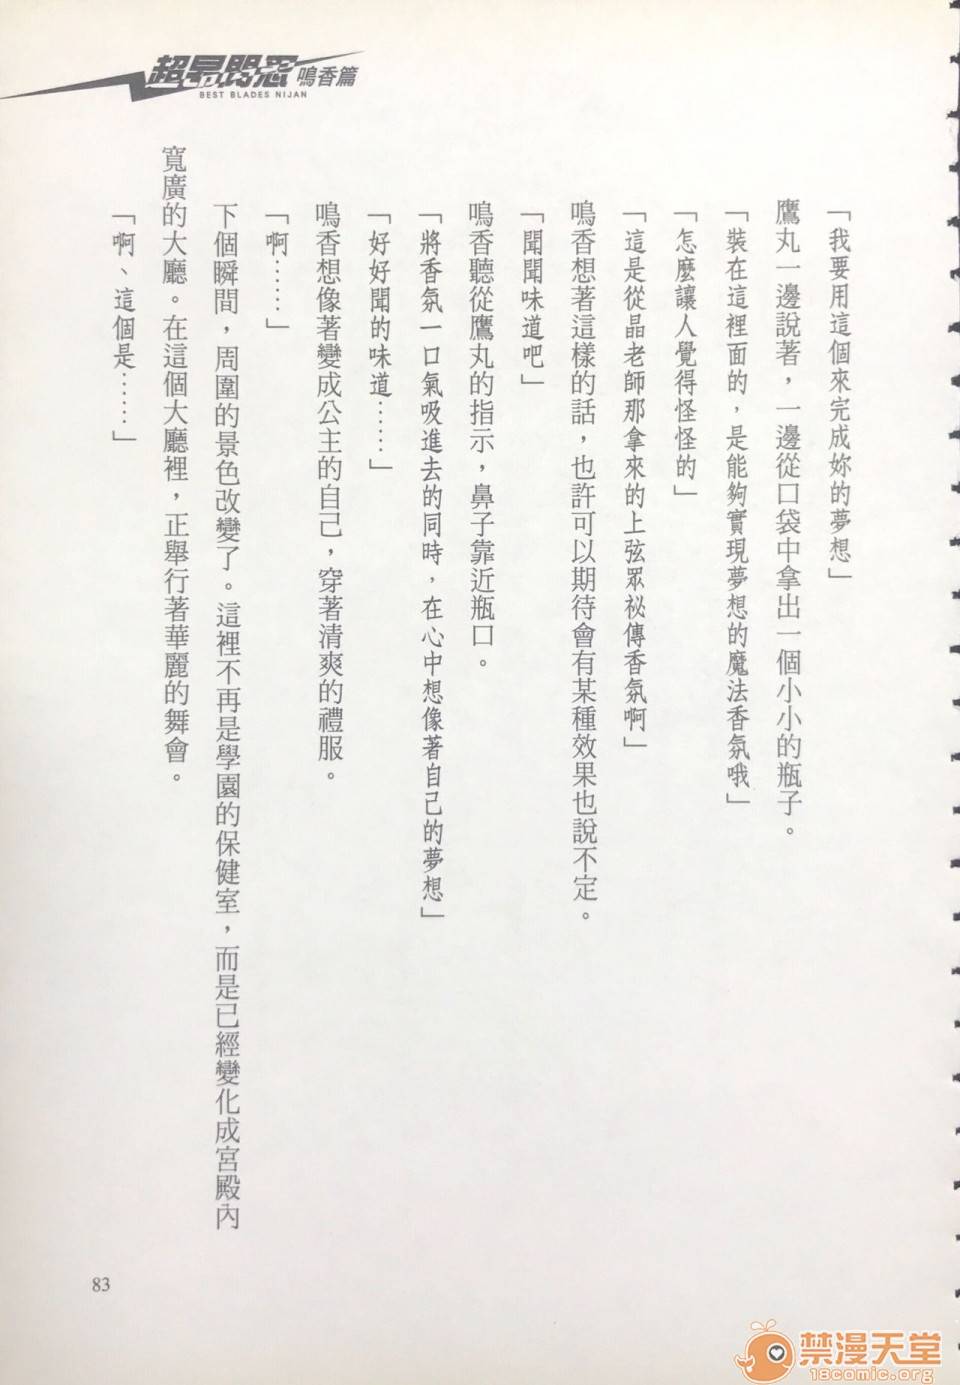 超昂閃忍 鳴香篇
BEST BLADES NIJAN
「我要用這個來完成妳的夢想」
鷹丸一邊說著，一邊從口袋中拿出一個小小的瓶子。
「裝在這裡面的，是能夠實現夢想的魔法香氛哦」
「怎麼讓人覺得怪怪的」
「這是從晶老師那拿來的上弦眾祕傳香氛啊」
鳴香想著這樣的話，也許可以期待會有某種效果也說不定。
「聞聞味道吧」
鳴香聽從鷹丸的指示，鼻子靠近瓶口。
「將香氛一口氣吸進去的同時，在心中想像著自己的夢想」
「好好聞的味道……」
鳴香想像著變成公主的自己，穿著清爽的禮服。
「啊……」
下個瞬間，周圍的景色改變了。這裡不再是學園的保健室，而是已經變化成宮殿內
寬廣的大廳。在這個大廳裡，正舉行著華麗的舞會。
「啊、這個是……」
83
禁漫天堂
18comic.org